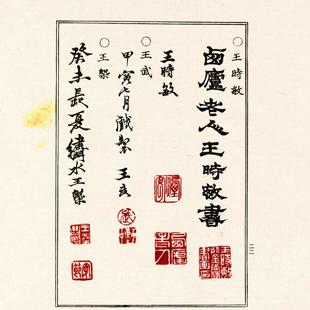 ○王時敏
西廬老人王時敏書
王時敏
○王武
甲寅七月戲製 王武
○王槩
癸未長夏繡水王槩
二二